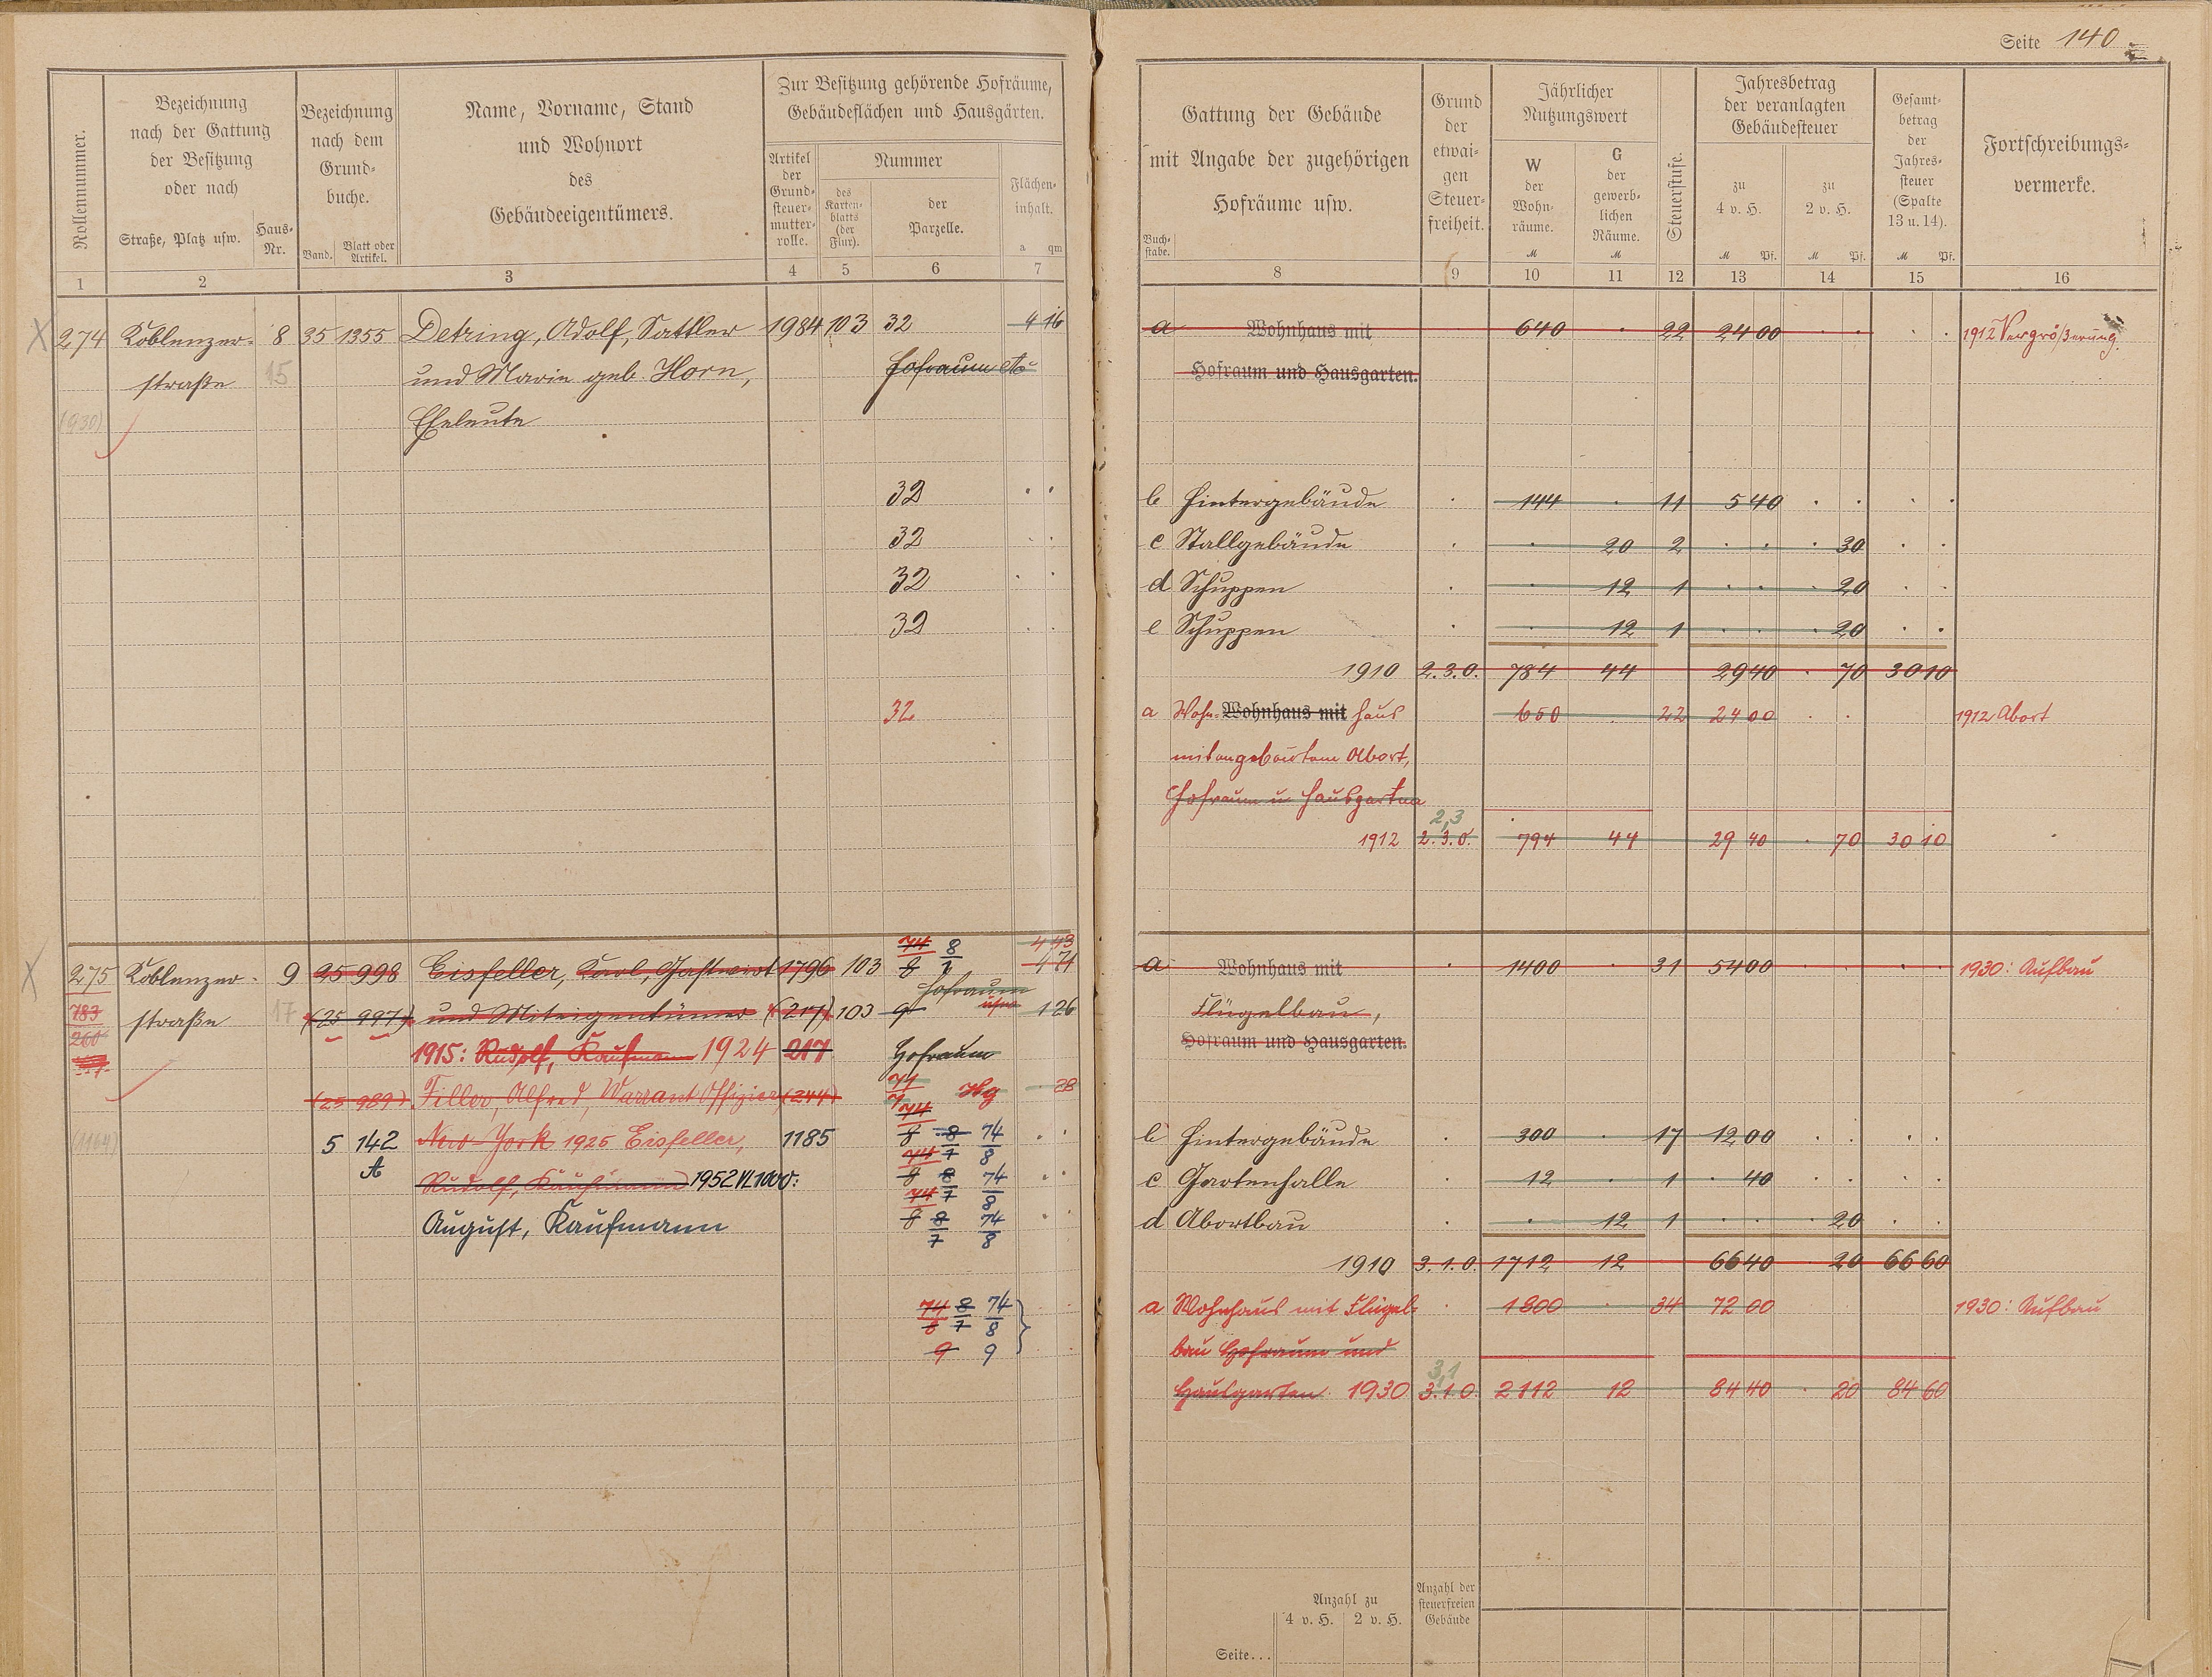 Seite 140
Rollennummer.
Bezeichnung
nach der Gattung
der Besitzung
oder nach
Straße, Platz usw.
Haus-
Nr.
Bezeichnung
nach dem
Grund-
buche.
Band.
Blatt oder
Artikel.
Name, Vorname, Stand
und Wohnort
des
Gebäudeeigentümers.
Zur Besitzung gehörende Hofräume,
Gebäudeflächen und Hausgärten.
Artikel
der
Grund-
steuer-
mutter-
rolle.
Nummer
des
Karten-
blatts
(der
Flur).
der
Parzelle.
Flächen-
inhalt.
a qm
1 2 3 4 5 6 7
274 Koblenzer- 8 35 1355 Detring, Adolf, Sattler 1984 103 32 4 16
straße 15 und Marie geb. Horn, Hofraum
(930) Eheleute
32
32
32
32
32
275 Koblenzer- 9 25 998 Eisfeller, Karl, Gastwirt 1796 103 74 8 4 43
8 7 4 71
Hofraum
783 straße 17 (25 997) und Miteigentümer (217) 103 9 usw 1 26
260
1915: Rudolf, Kaufmann 1924 217 Hofraum
(25 989) Filler, Alfred, Warrant Offizier (244) 74 Hg 28
(1164) 5 142 New-York 1925 Eisfeller, 1185 8 8 74
A Rudolf, Kaufmann 1952 VL 1000: 74 7 8
August, Kaufmann 8 8 74
7 8
74 8 74
8 7 8
9 9
Gattung der Gebäude
mit Angabe der zugehörigen
Hofräume usw.
Buch-
stabe.
Grund
der
etwai-
gen
Steuer-
freiheit.
Jährlicher
Nutzungswert
W
der
Wohn-
räume.
M
G
der
gewerb-
lichen
Räume.
M
Steuerstufe.
Jahresbetrag
der veranlagten
Gebäudesteuer
zu
4 v. H.
M Pf.
zu
2 v. H.
M Pf.
Gesamt-
betrag
der
Jahres-
steuer
(Spalte
13 u. 14).
M Pf.
Fortschreibungs-
vermerke.
8 9 10 11 12 13 14 15 16
a Wohnhaus mit 640 22 24 00 1912 Vergrößerung.
Hofraum und Hausgarten.
b Hintergebäude 144 11 5 40
c Stallgebäude 20 2 30
d Schuppen 12 1 20
e Schuppen 12 1 20
1910 2.3.0. 784 44 29 40 70 30 10
a Wohn- Wohnhaus mit haus 650 22 24 00 1912 Abort
mit angebautem Abort,
Hofraum u Hausgarten
2,3
1912 2.3.0. 794 44 29 40 70 30 10
a Wohnhaus mit 1400 31 54 00 1930: Aufbau
Flügelbau,
Hofraum und Hausgarten.
b Hintergebäude 300 17 12 00
c Gartenhalle 12 1 40
d Abortbau 12 1 20
1910 3.1.0. 1712 12 66 40 20 66 60
a Wohnhaus mit Flügel- 1800 34 72 00 1930: Aufbau
bau Hofraum und
3,1
Hausgarten 1930 3.1.0. 2112 12 84 40 20 84 60
Anzahl zu
4 v. H. 2 v. H.
Anzahl der
steuerfreien
Gebäude
Seite...